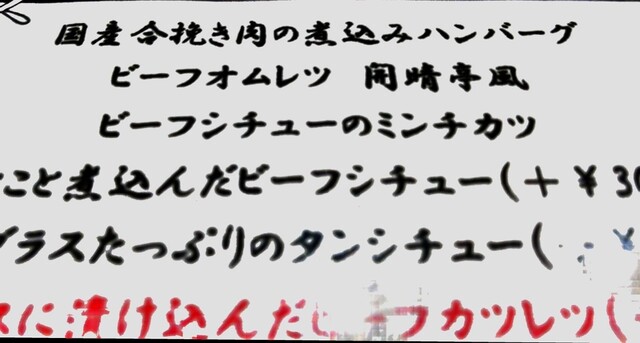 国産合挽き肉の煮込みハンバーグ
ビーフオムレツ 開晴亭風
ビーフシチューのミンチカツ
こと煮込んだビーフシチュー(+¥30
グラスたっぷりのタンシチュー( ¥
スに漬け込んだビーフカツレツ(